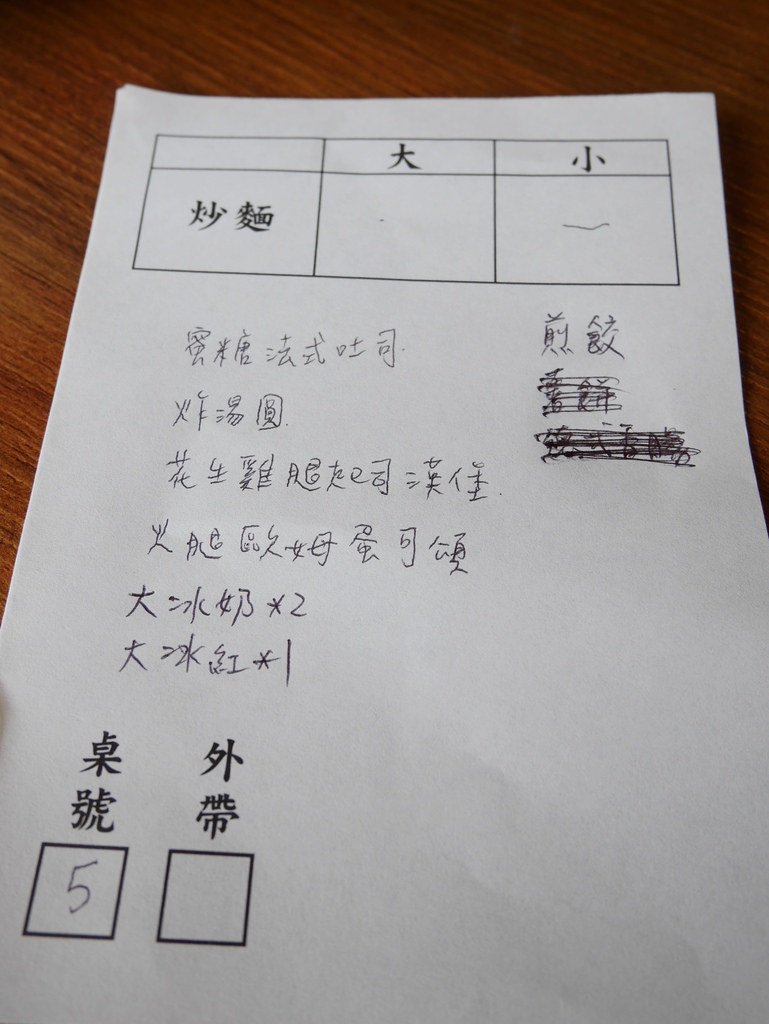 大 小
炒麵 一
蜜糖法式吐司
炸湯圓
花生雞腿起司漢堡
火腿歐姆蛋可頌
大冰奶*2
大冰紅*1
煎餃
薯餅
桌號 外帶
5